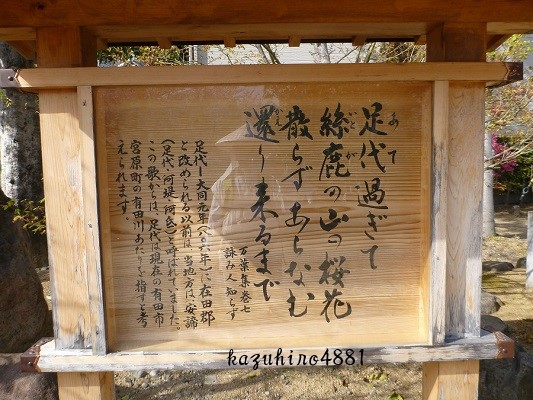 足代過ぎて
絲鹿の山の桜花
散らずあらなむ
還り来るまで
万葉集巻七
詠み人知らず
足代ー大同元年(八〇六年)に在田郡
と改められる以前は、当地方は「安諦
(足代、阿堤、阿氐)と呼ばれていました。
この歌からは、足代は現在の有田市
宮原町の有田川あたりを指すと考
えられます。
kazuhiro4881